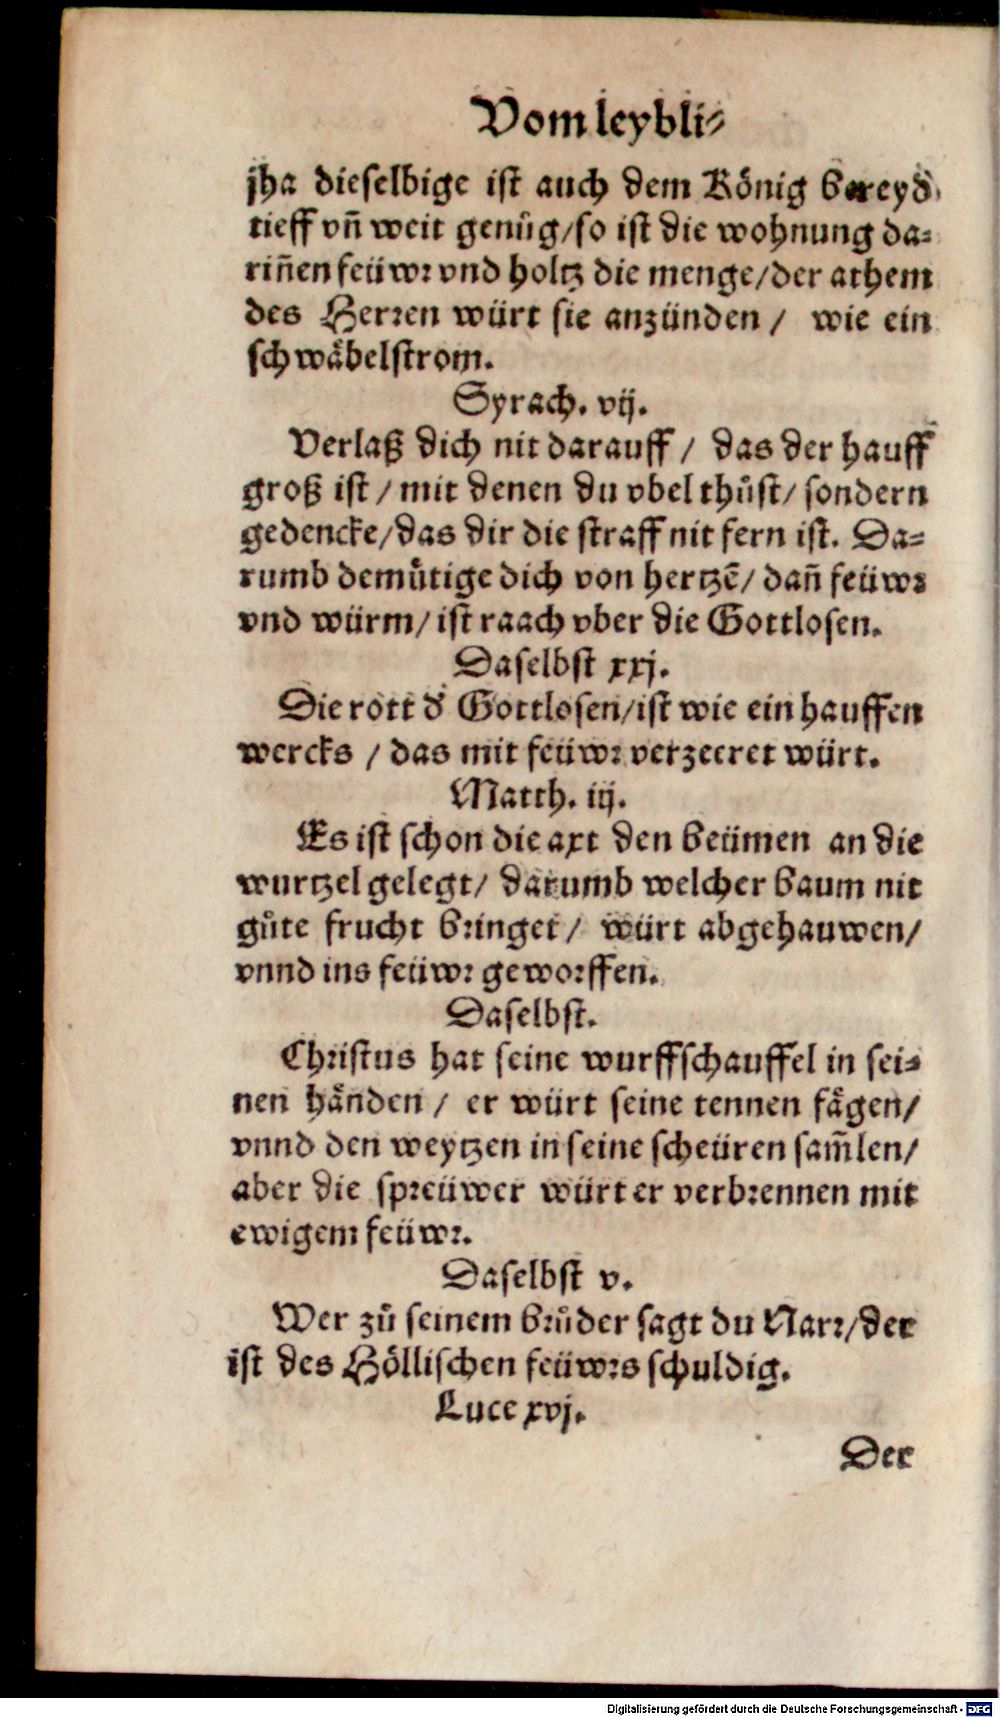 Vom leybli⸗
jha dieselbige ist auch dem König bereyd
tieff vñ weit genůg/so ist die wohnung da⸗
riñen feüwr vnd holtz die menge/der athem
des Herren würt sie anzünden / wie ein
schwäbelstrom.
Syrach. vij.
Verlaß dich nit darauff / das der hauff
groß ist / mit denen du vbel thůst/ sondern
gedencke/das dir die straff nit fern ist. Da⸗
rumb demůtige dich von hertzē/ dañ feüwr
vnd würm/ ist raach vber die Gottlosen.
Daselbst xxj.
Die rott d' Gottlosen/ist wie ein hauffen
wercks / das mit feüwr verzeeret würt.
Matth. iij.
Es ist schon die axt den beümen an die
wurtzel gelegt/ darumb welcher baum nit
gůte frucht bringet / würt abgehauwen/
vnnd ins feüwr geworffen.
Daselbst.
Christus hat seine wurffschauffel in sei⸗
nen händen / er würt seine tennen fägen/
vnnd den weytzen in seine scheüren sam̄len/
aber die spreüwer würt er verbrennen mit
ewigem feüwr.
Daselbst v.
Wer zů seinem brůder sagt du Narr/der
ist des Höllischen feüwrs schuldig.
Luce xvj.
Der
Digitalisierung gefördert durch die Deutsche Forschungsgemeinschaft - DFG